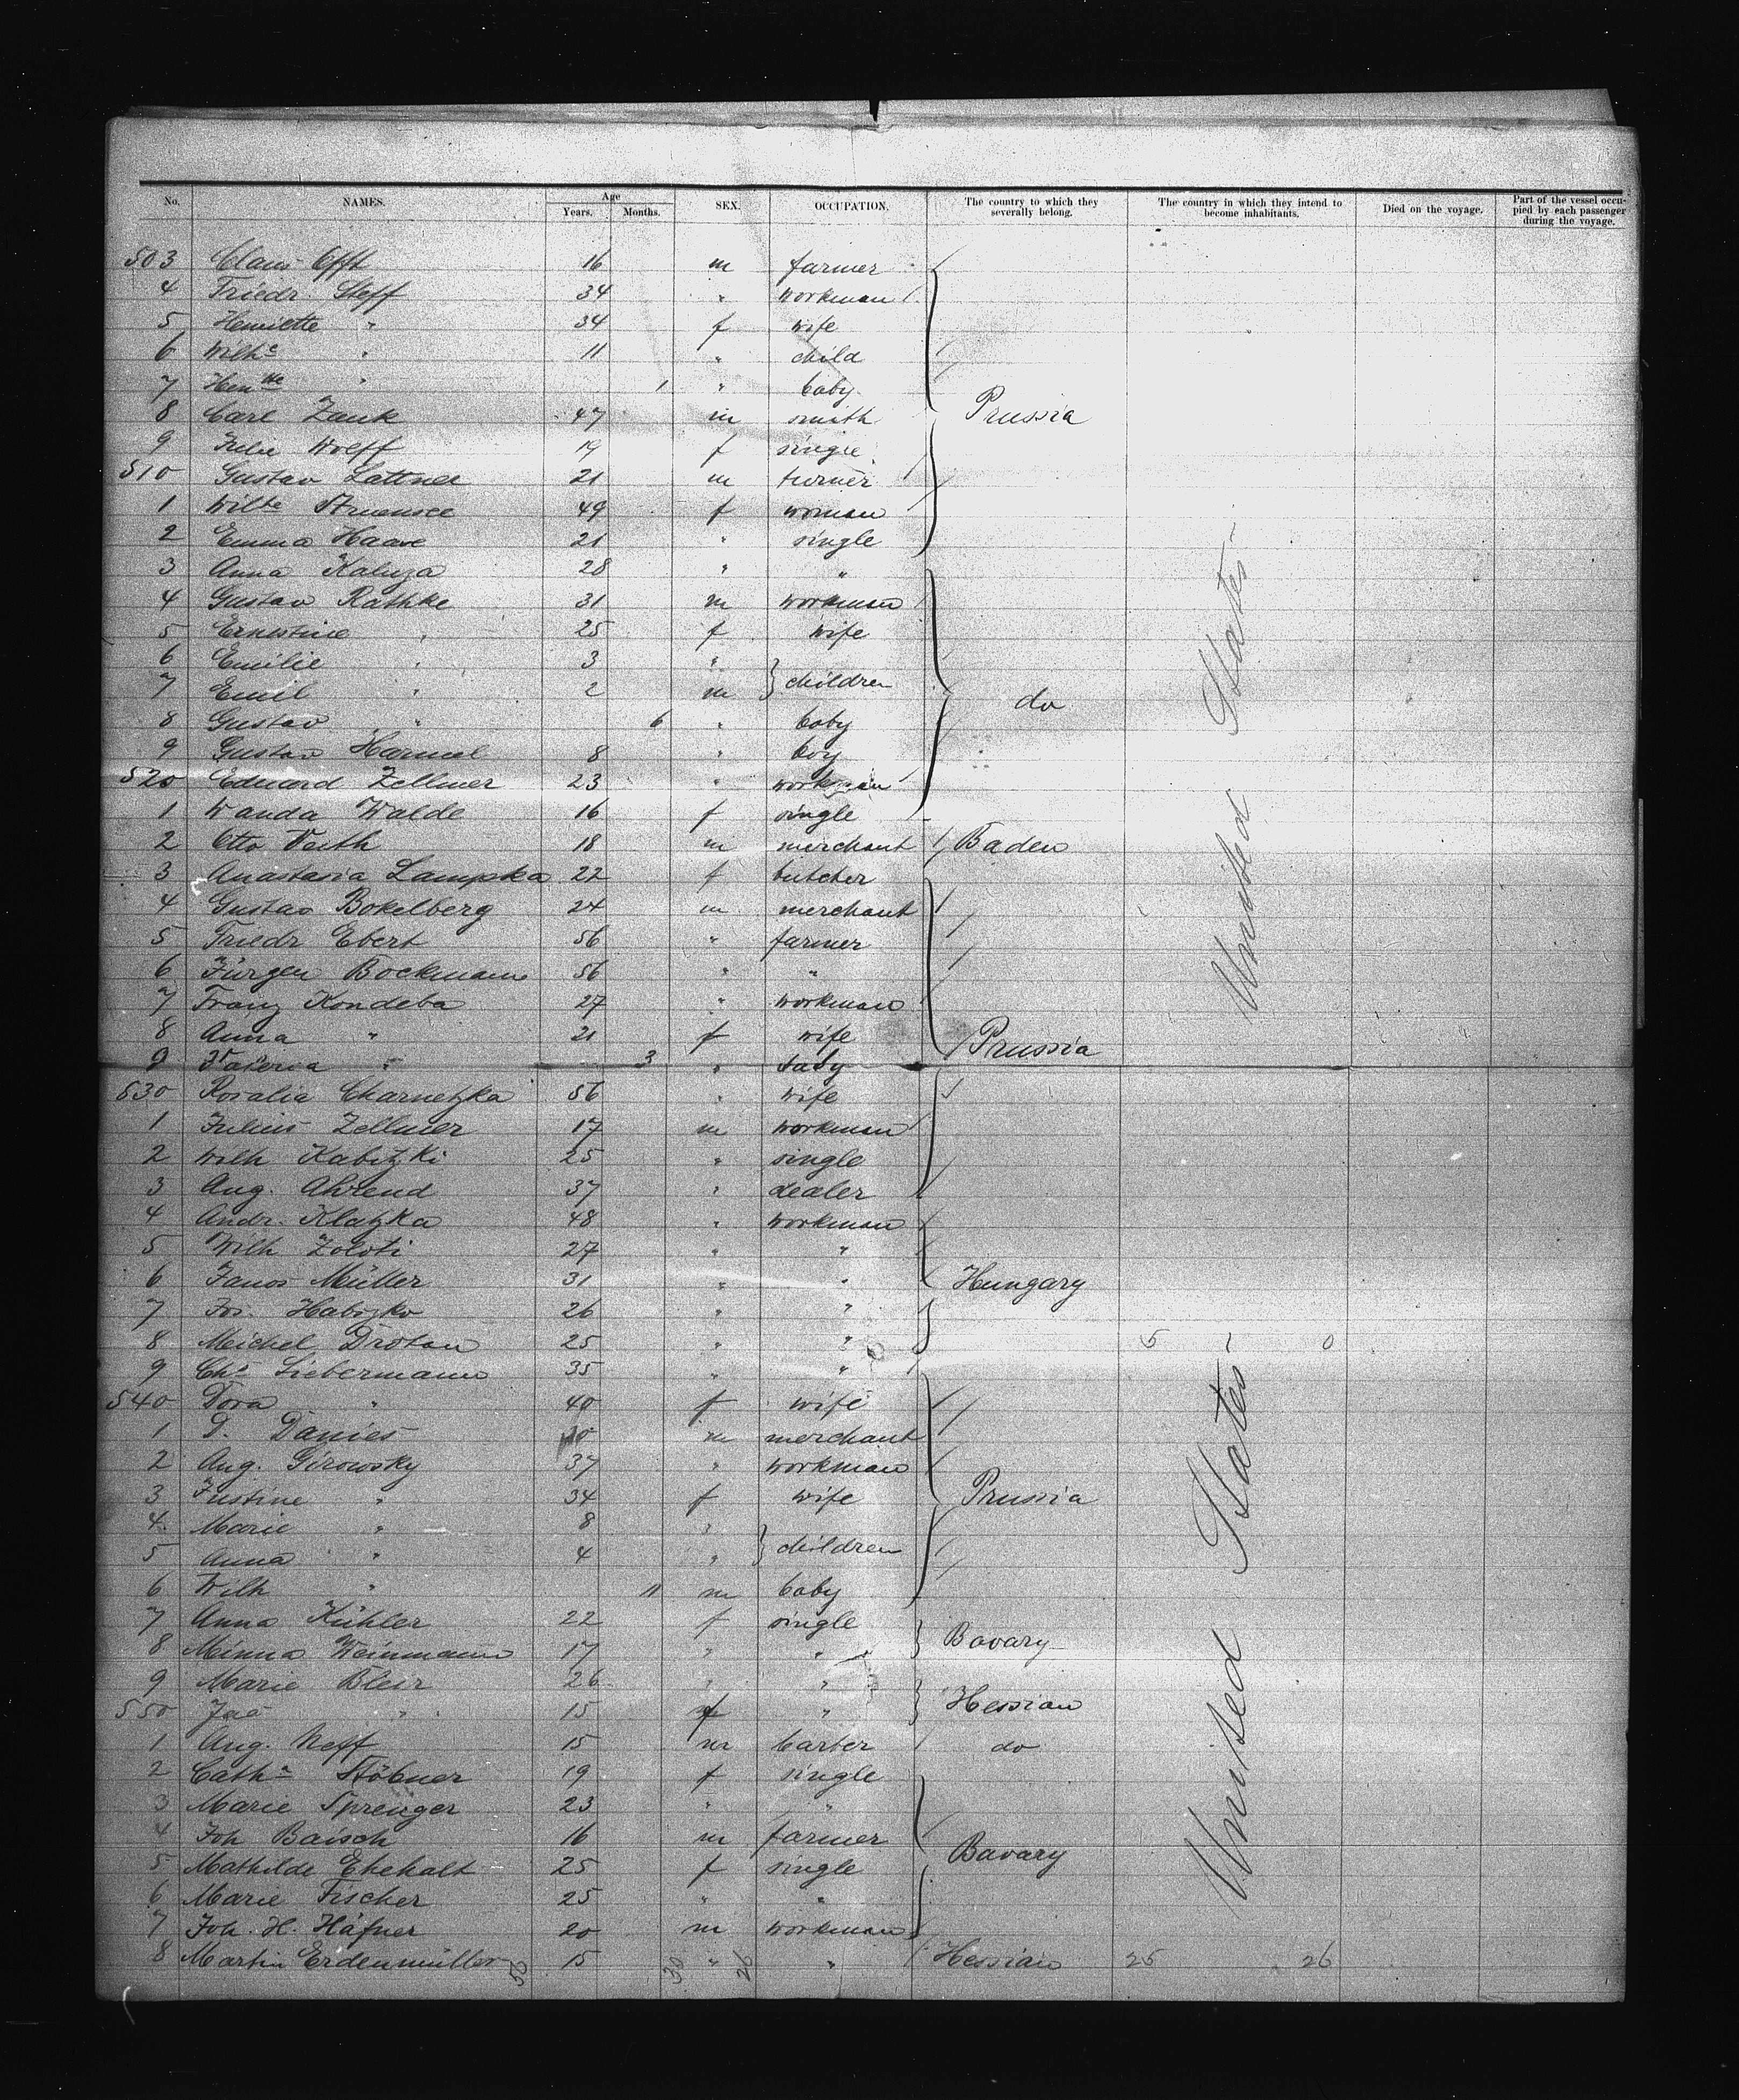 No. NAMES. Age Years. Months. SEX. OCCUPATION. The country to which they severally belong. The country in which they intend to become inhabitants. Died on the voyage. Part of the vessel occupied by each passenger during the voyage.
503 Claus Offt 16 m farmer
4 Friedr. Steff 34 " workman
5 Henriette " 34 f wife
6 Wilhe " 11 " child
7 Hentte " 1 " baby
8 Carl Zauk 47 m smith Prussia
9 Julie Wolff 19 f single
510 Gustav Lattner 21 m turner
1 Wilhe Struensee 49 f woman
2 Emma Haare 21 " single
3 Anna Kaluza 28 " "
4 Gustav Rathke 31 m workman
5 Ernestine " 25 f wife
6 Emilie " 3 "
7 Emil " 2 m } children do
8 Gustav " 6 " baby
9 Gustav Harmel 8 " boy
520 Eduard Zellmer 23 " workman
1 Wanda Walde 16 f single
2 Otto Veith 18 m merchant Baden
3 Anastasia Lampka 22 f butcher
4 Gustav Bokelberg 24 m merchant
5 Friedr Ebert 56 " farmer
6 Jürgen Bockmann 56 " "
7 Franz Kondeba 27 " workman
8 Anna " 21 f wife Prussia
9 Valeria " 3 " baby
530 Rosalia Charnetzka 56 " wife
1 Julius Zellmer 17 m workman
2 Wilh Kabitzki 25 " single
3 Aug. Ahrend 37 " dealer
4 Andr. Klatzka 48 " workman
5 Wilh Zoloti 27 " "
6 Janos Müller 31 " " Hungary
7 Jos. Habozko 26 " "
8 Michel Drotan 25 " " 5 1 0
9 Chs Liebermann 35 " "
540 Dora " 40 f wife
1 D. Danies m merchant
2 Aug. Girowsky 37 " workman
3 Justine " 34 f wife Prussia
4 Marie " 8 "
5 Anna " 4 " } children
6 Wilh " 11 m baby
7 Anna Kühler 22 f single
8 Minna Weinmann 17 " " Bavary
9 Marie Bleir 26 " "
550 " 15 f " Hessian
1 Aug. Neff 15 m barber do
2 Cathn Stöbner 19 f single
3 Marie Sprenger 23 " "
4 Joh Baisch 16 m farmer
5 Mathilde Ehehalt 25 f single Bavary
6 Marie Fischer 25 " "
7 Joh. H. Häfner 20 m workman
8 Martin Erdenmüller 15 " " Hessian 25 26
56 30 26
United States
United States